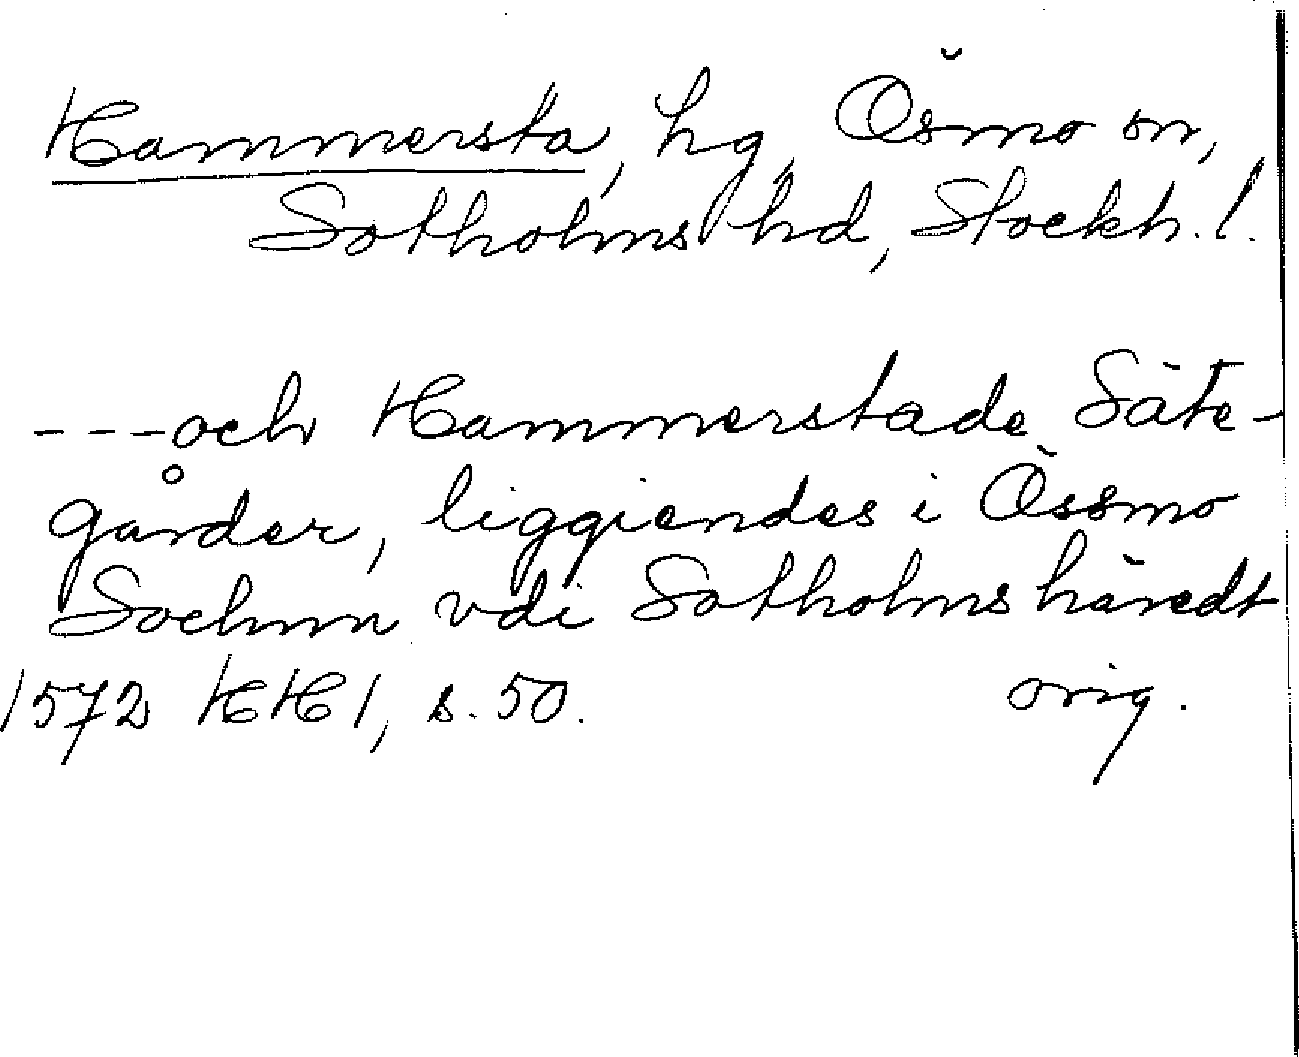 Hammersta, hg, Ösmo sn,
Sotholms hd, Stockh. l.
---och Hammerstade Säte-
gårder, liggiendes i Össmo
Sochnn vdi Sotholms häredt
1572 HH 1, s. 50. orig.